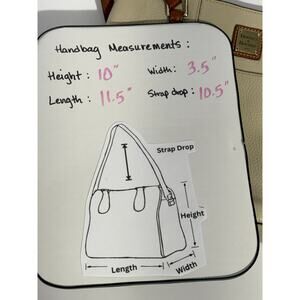 Handbag Measurements :
Height : 10" Width : 3.5"
Length : 11.5" Strap drop : 10.5"
Strap Drop
Height
Width
Length